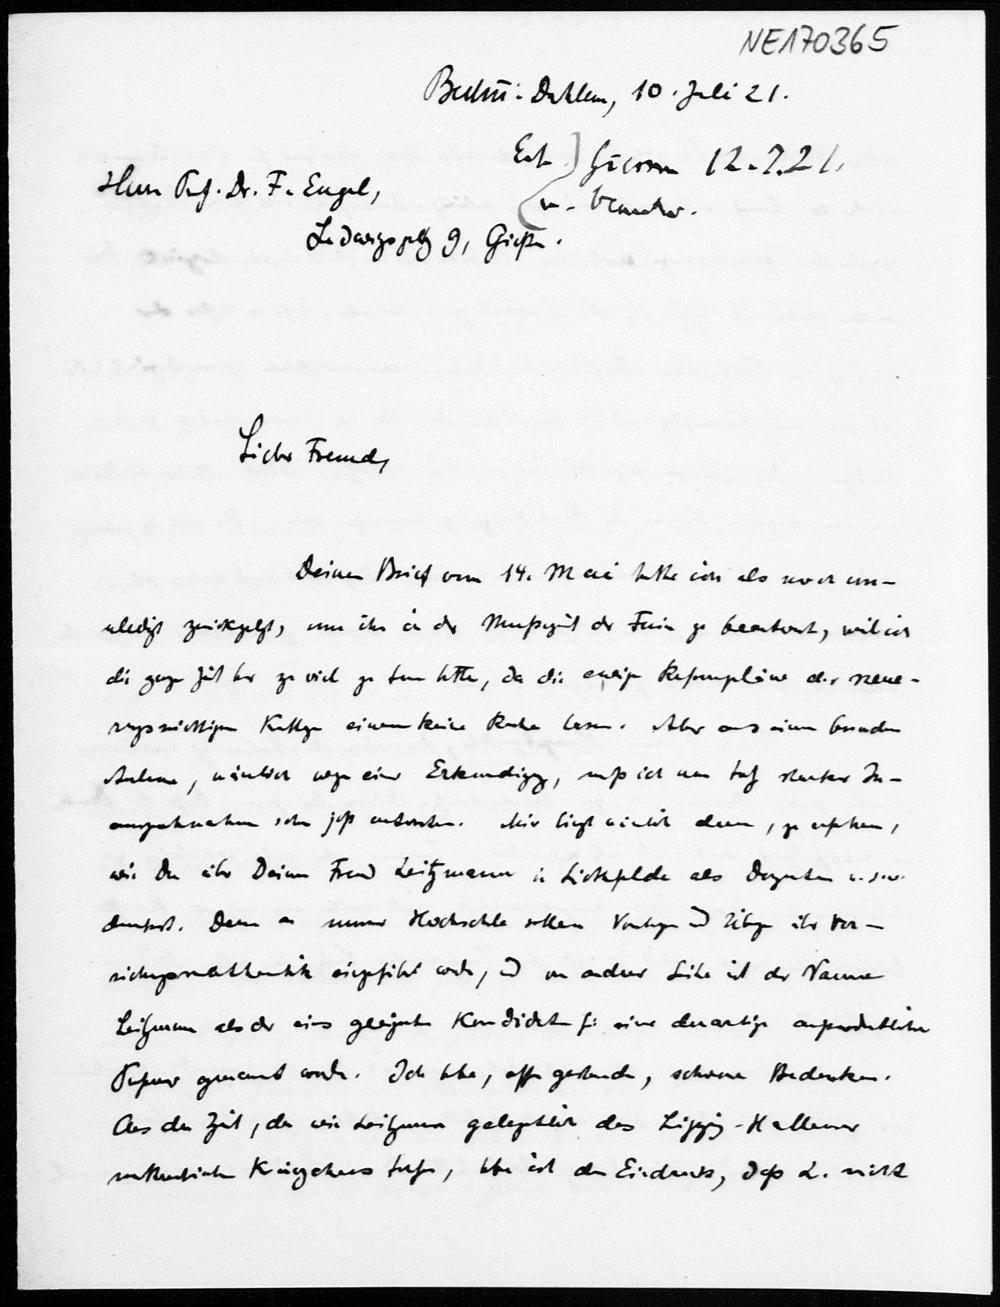 NE170365
Berlin-Dahlem, 10. Juli 21.
Giessen 12.7.21.
Herrn Prof. Dr. F. Engel,
u.
Ludwigsplatz 9, Giessen.
Lieber Freund,
Deinen Brief vom 14. Mai hatte ich als noch un-
erledigt zurückgelegt, um ihn in der Mussezeit der Ferien zu beantworten, weil ich
die ganze Zeit her zu viel zu tun hatte, da die ewigen Reformpläne der neue-
rungssüchtigen Kollegen einem keine Ruhe lassen. Aber aus einem besonderen
Anlass, nämlich wegen einer Erkundigung, muss ich nun trotz starker In-
anspruchnahme schon jetzt antworten. Mir liegt nämlich daran, zu erfahren,
wie Du über Deinen Freund Leitzmann in Lichtenfelde als Dozenten u.s.w.
denkst. Denn an unserer Hochschule sollen Vorträge und Übungen über Ver-
sicherungsmathematik eingeführt werden, und von anderer Seite ist der Name
Leitzmann als der eines geeigneten Kandidaten für eine derartige ausserordentliche
Professur genannt worden. Ich habe, offen gestanden, schwere Bedenken.
Aus der Zeit, da wir Leitzmann gelegentlich des Leipzig-Hallenser
mathematischen Kränzchens trafen, habe ich den Eindruck, dass L. nicht